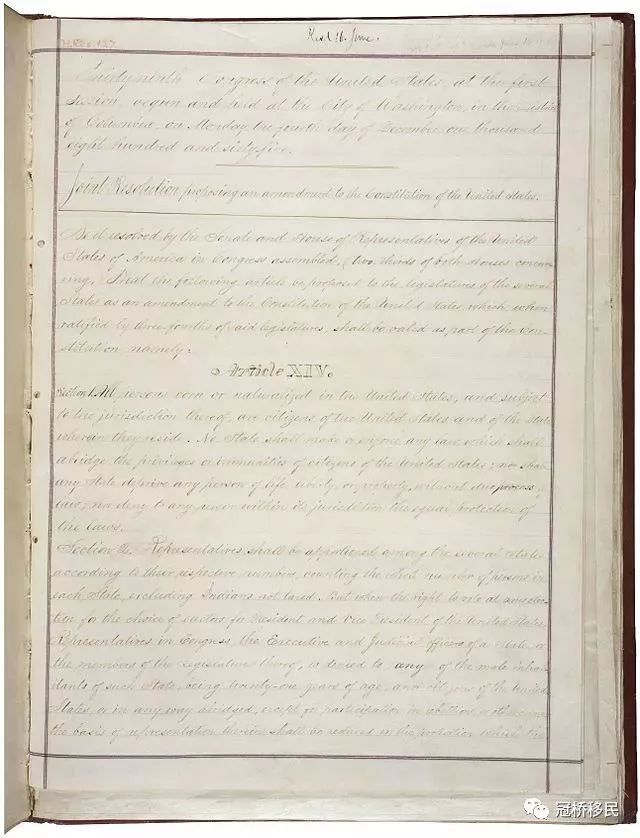 H.Res. 127
Thirty-ninth Congress of the United States, at the first
Session, begun and held at the City of Washington, in the District
of Columbia, on Monday the fourth day of December, one thousand
eight hundred and sixty-five.
Joint Resolution proposing an amendment to the Constitution of the United States.
Be it resolved by the Senate and House of Representatives of the United
States of America in Congress assembled, (two-thirds of both Houses concur-
ring,) That the following article be proposed to the legislatures of the several
States as an amendment to the Constitution of the United States, which, when
ratified by three-fourths of said legislatures, shall be valid as part of the Con-
stitution, namely:
Article XIV.
Section 1. All persons born or naturalized in the United States, and subject
to the jurisdiction thereof, are citizens of the United States and of the State
wherein they reside. No State shall make or enforce any law which shall
abridge the privileges or immunities of citizens of the United States; nor shall
any State deprive any person of life, liberty, or property, without due process of
law; nor deny to any person within its jurisdiction the equal protection of
the laws.
Section 2. Representatives shall be apportioned among the several States
according to their respective numbers, counting the whole number of persons in
each State, excluding Indians not taxed. But when the right to vote at any elec-
tion for the choice of electors for President and Vice President of the United States,
Representatives in Congress, the Executive and Judicial officers of a State, or
the members of the Legislature thereof, is denied to any of the male inhab-
itants of such State, being twenty-one years of age, and citizens of the United
States, or in any way abridged, except for participation in rebellion, or other crime,
the basis of representation therein shall be reduced in the proportion which the
冠桥移民